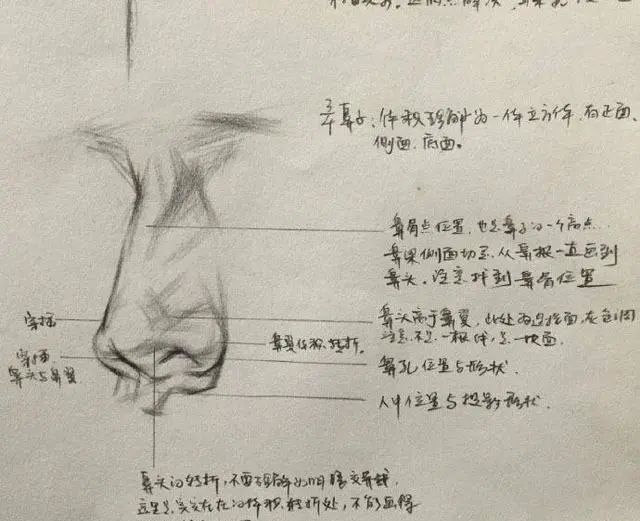 鼻子：体积理解为一个立方体，有正面，
侧面，底面。
鼻骨点位置，也是鼻子的一个高点
鼻梁侧面切忌，从鼻根一直画到
鼻头，注意找到鼻骨位置
鼻头高于鼻翼，此处为过渡面，灰色调
注意不是一根线，是一块面。
穿插
穿插
鼻头与鼻翼
鼻翼体积，转折。
鼻孔位置与形状．
人中位置与投影形状．
鼻头的转折，不要理解为明暗交界线
这里是实实在在的体积，转折处，不能画得